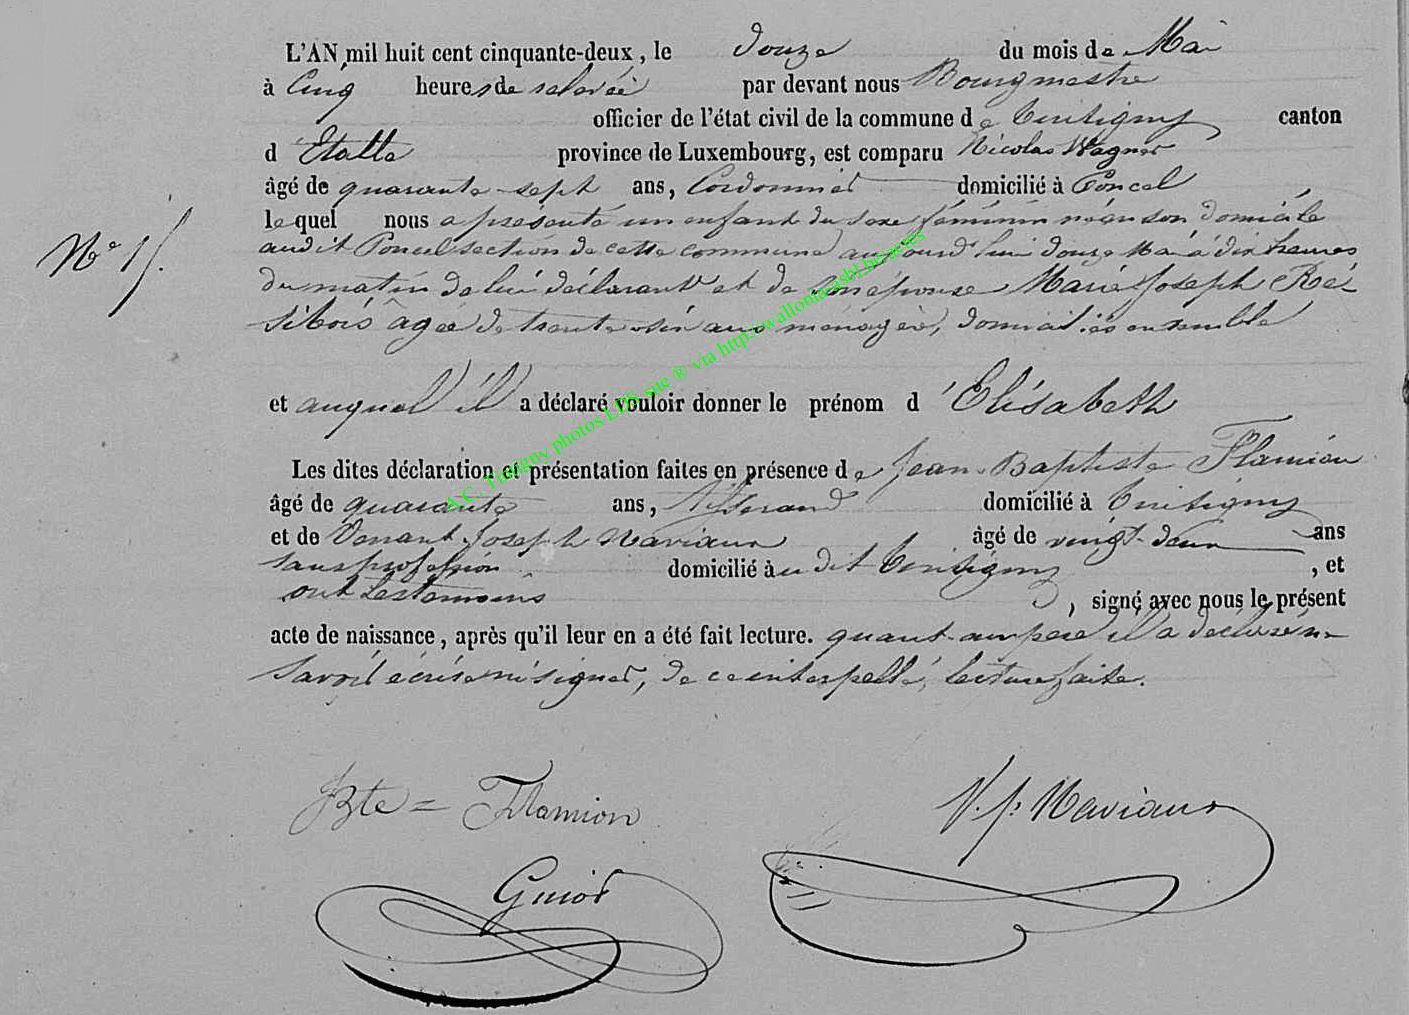 L'AN mil huit cent cinquante-deux, le douze du mois de Mai
à Cinq heures de relevée par devant nous Bourgmestre
officier de l'état civil de la commune de Tintigny canton
d'Etalle province de Luxembourg, est comparu Nicolas Wagner
âgé de quarante-sept ans, Cordonnier domicilié à Poncel
lequel nous a présenté un enfant du sexe féminin né en son domicile
N° 15.
audit Poncel section de cette commune aujourd'hui douze Mai à dix heures
du matin de lui déclarant et de son épouse Marie Joseph Ré-
sibois âgée de trente six ans ménagère, domiciliés ensemble
et auquel il a déclaré vouloir donner le prénom d'Elisabeth
Les dites déclaration et présentation faites en présence de Jean-Baptiste Flamion
âgé de quarante ans, domicilié à Tintigny
et de Venant Joseph Naviaux âgé de vingt-deux ans
sans profession domicilié audit Tintigny, et
ont les témoins, signé avec nous le présent
acte de naissance, après qu'il leur en a été fait lecture. quant au père il a déclaré ne
savoir écrire ni signer, de ce interpellé, lecture faite.
JBte = Flamion
V. J. Naviaux
Guiot
A.C. Tintigny photos LDS site ® via http://wallonia-asbl.be/actes